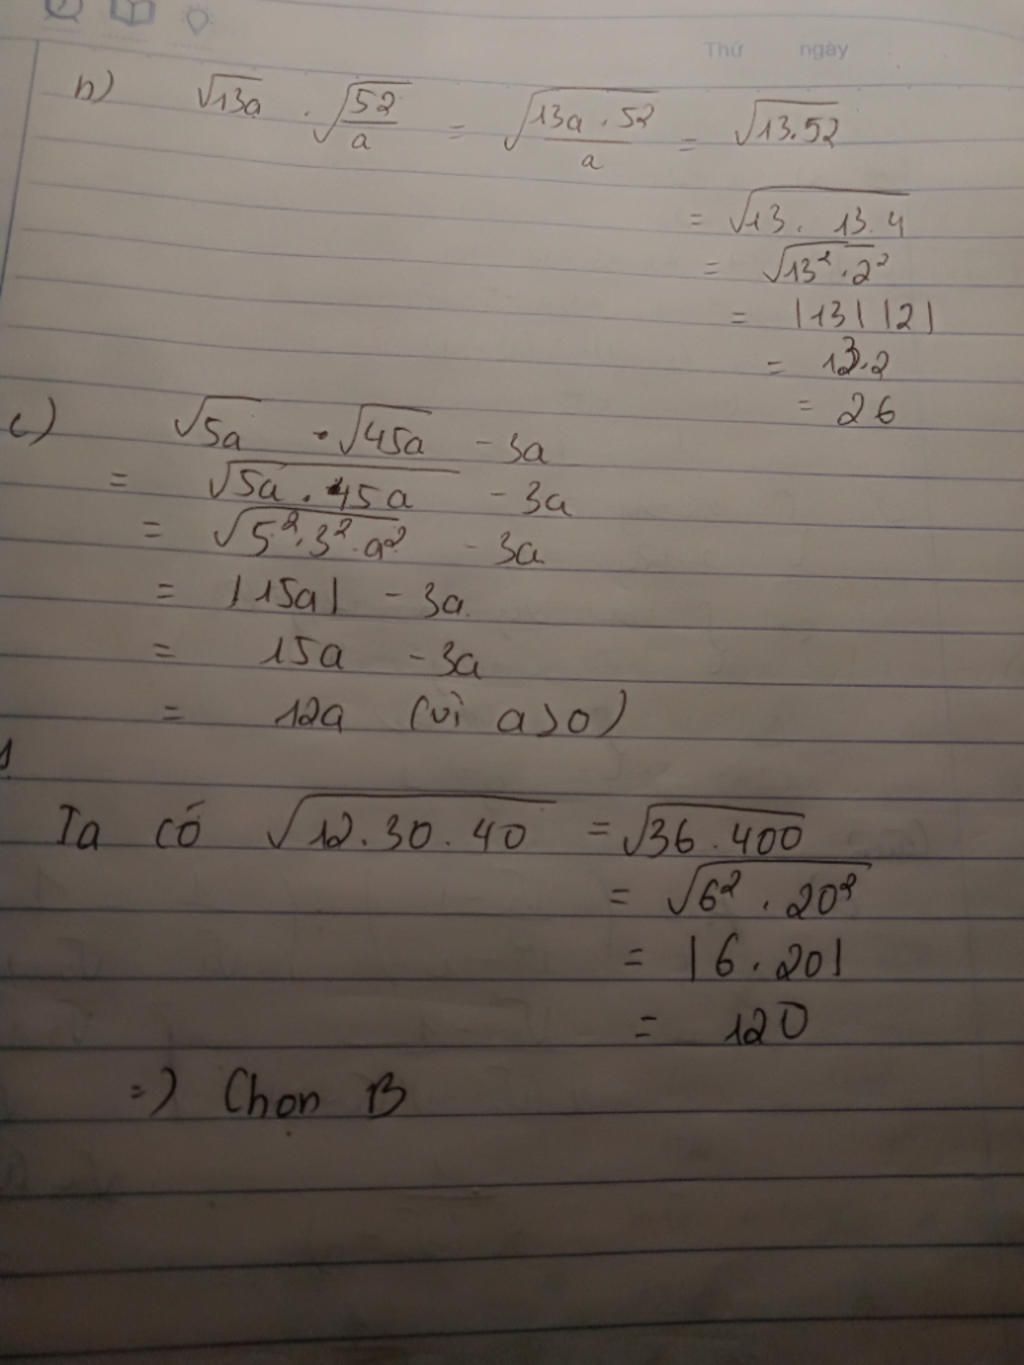 Thứ ngày
b) √13a . √52/a = √(13a . 52)/a = √13.52
= √13. 13.4
= √13².2²
= |13| |2|
= 13.2
= 26
c) √5a . √45a - 3a
= √5a . 45a - 3a
= √5².3².a² - 3a
= |15a| - 3a
= 15a - 3a
= 12a (vì a>0)
1
Ta có √12.30.40 = √36.400
= √6² . 20²
= |6.20|
= 120
=> Chọn B